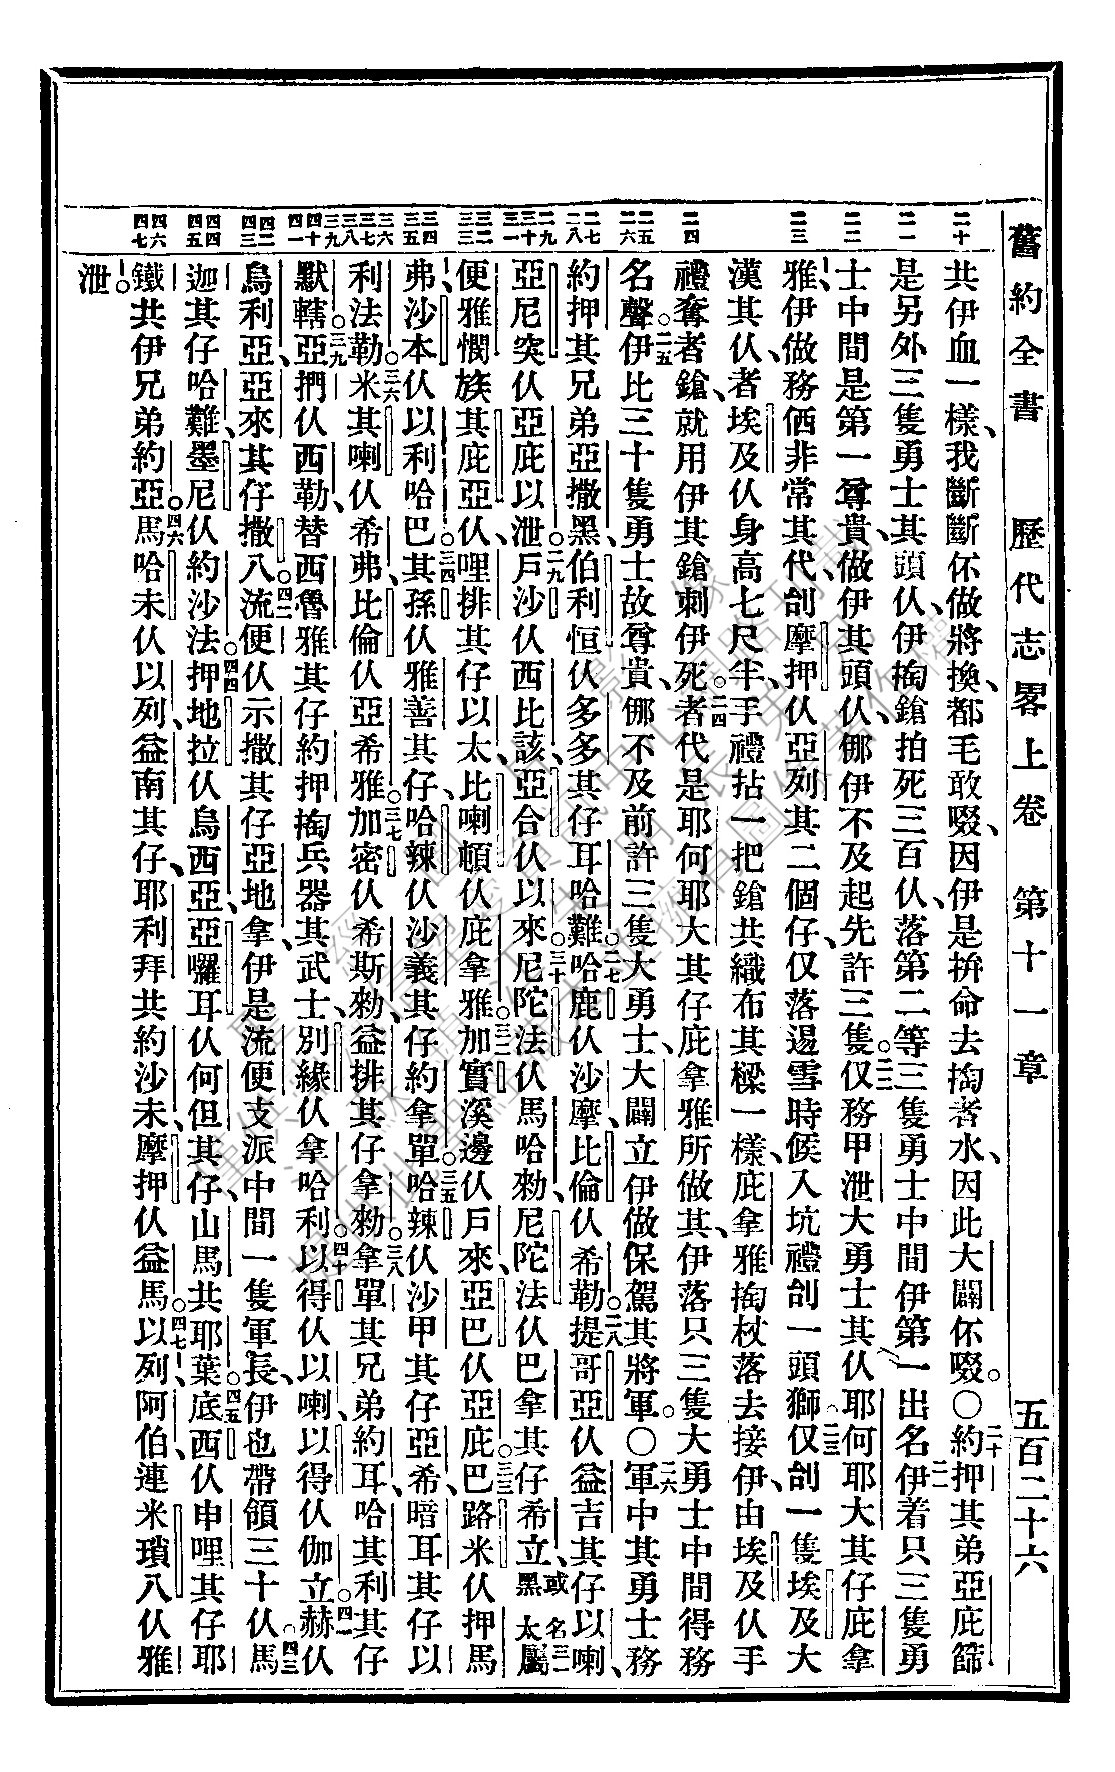 舊約全書 歷代志畧上卷 第十一章 五百二十六
二十 二一 二二 二三 二四 二五 二六 二七 二八 二九 三十 三一 三二 三三 三四 三五 三六 三七 三八 三九 四十 四一 四二 四三 四四 四五 四六 四七
共伊血一樣、我斷斷伓做將換、都毛敢啜、因伊是拚命去掏者水、因此大闢伓啜。〇二十約押其弟亞庇篩
是另外三隻勇士其頭、仈伊掏鎗拍死三百仈、落第二等三隻勇士中間伊第一出名、二一伊着只三隻勇
士中間是第一尊貴、做伊其頭仈、倻伊不及起先許三隻。二二仅務甲泄大勇士其仈耶何耶大其仔庇拿
雅、伊做務㑚非常其代、刣摩押仈亞列其二個仔、仅落逿雪時候入坑禮刣一頭獅。二三仅刣一隻埃及大
漢其仈、者埃及仈身高七尺半、手禮拈一把鎗共織布其樑一樣、庇拿雅掏杖落去接伊、由埃及仈手
禮奪者鎗、就用伊其鎗刺伊死。二四者代是耶何耶大其仔庇拿雅所做其、伊落只三隻大勇士中間得務
名聲。二五伊比三十隻勇士故尊貴、倻不及前許三隻大勇士、大闢立伊做保駕其將軍。〇二六軍中其勇士務
約押其兄弟亞撒黑、伯利恒仈多多其仔耳哈難。二七哈鹿仈沙摩、比倫仈希勒提。二八哥亞仈益吉其仔以喇、
亞尼突仈亞庇以泄。二九戶沙仈西比該、亞合仈以來。三十尼陀法仈馬哈勑、尼陀法仈巴拿其仔希立、或名黑太三一屬
便雅憫族其庇亞仈、哩排其仔以太、比喇頓仈庇拿雅。三二加實溪邊仈戶來、亞巴仈亞庇。三三巴路米仈押馬
弗、沙本仈以利哈巴。三四其孫仈雅善其仔、哈辣仈沙義其仔約拿單。三五哈辣仈沙甲其仔亞希暗、耳其仔以
利法勒。三六米其喇仈希弗、比倫仈亞希雅。三七加密仈希斯勑、益排其仔拿勑。三八拿單其兄弟約耳、哈其利其仔
默轄。三九亞捫仈西勒、替西魯雅其仔約押掏兵器其武士、別綠仈拿哈利。四十以得仈以喇、以得仈伽立。四一赫仈
烏利亞、亞來其仔撒八。四二流便仈示撒其仔亞地拿、伊是流便支派中間一隻軍長、伊也帶領三十仈。四三馬
迦其仔哈難、墨尼仈約沙法。四四押地拉仈烏西亞、亞囉耳仈何但其仔、山馬共耶葉。四五底西仈申哩其仔耶
鐵、共伊兄弟約亞。四六馬哈未仈以列、益南其仔、耶利拜共約沙未、摩押仈益馬。四七以列、阿伯、連米瑣八仈雅
泄。